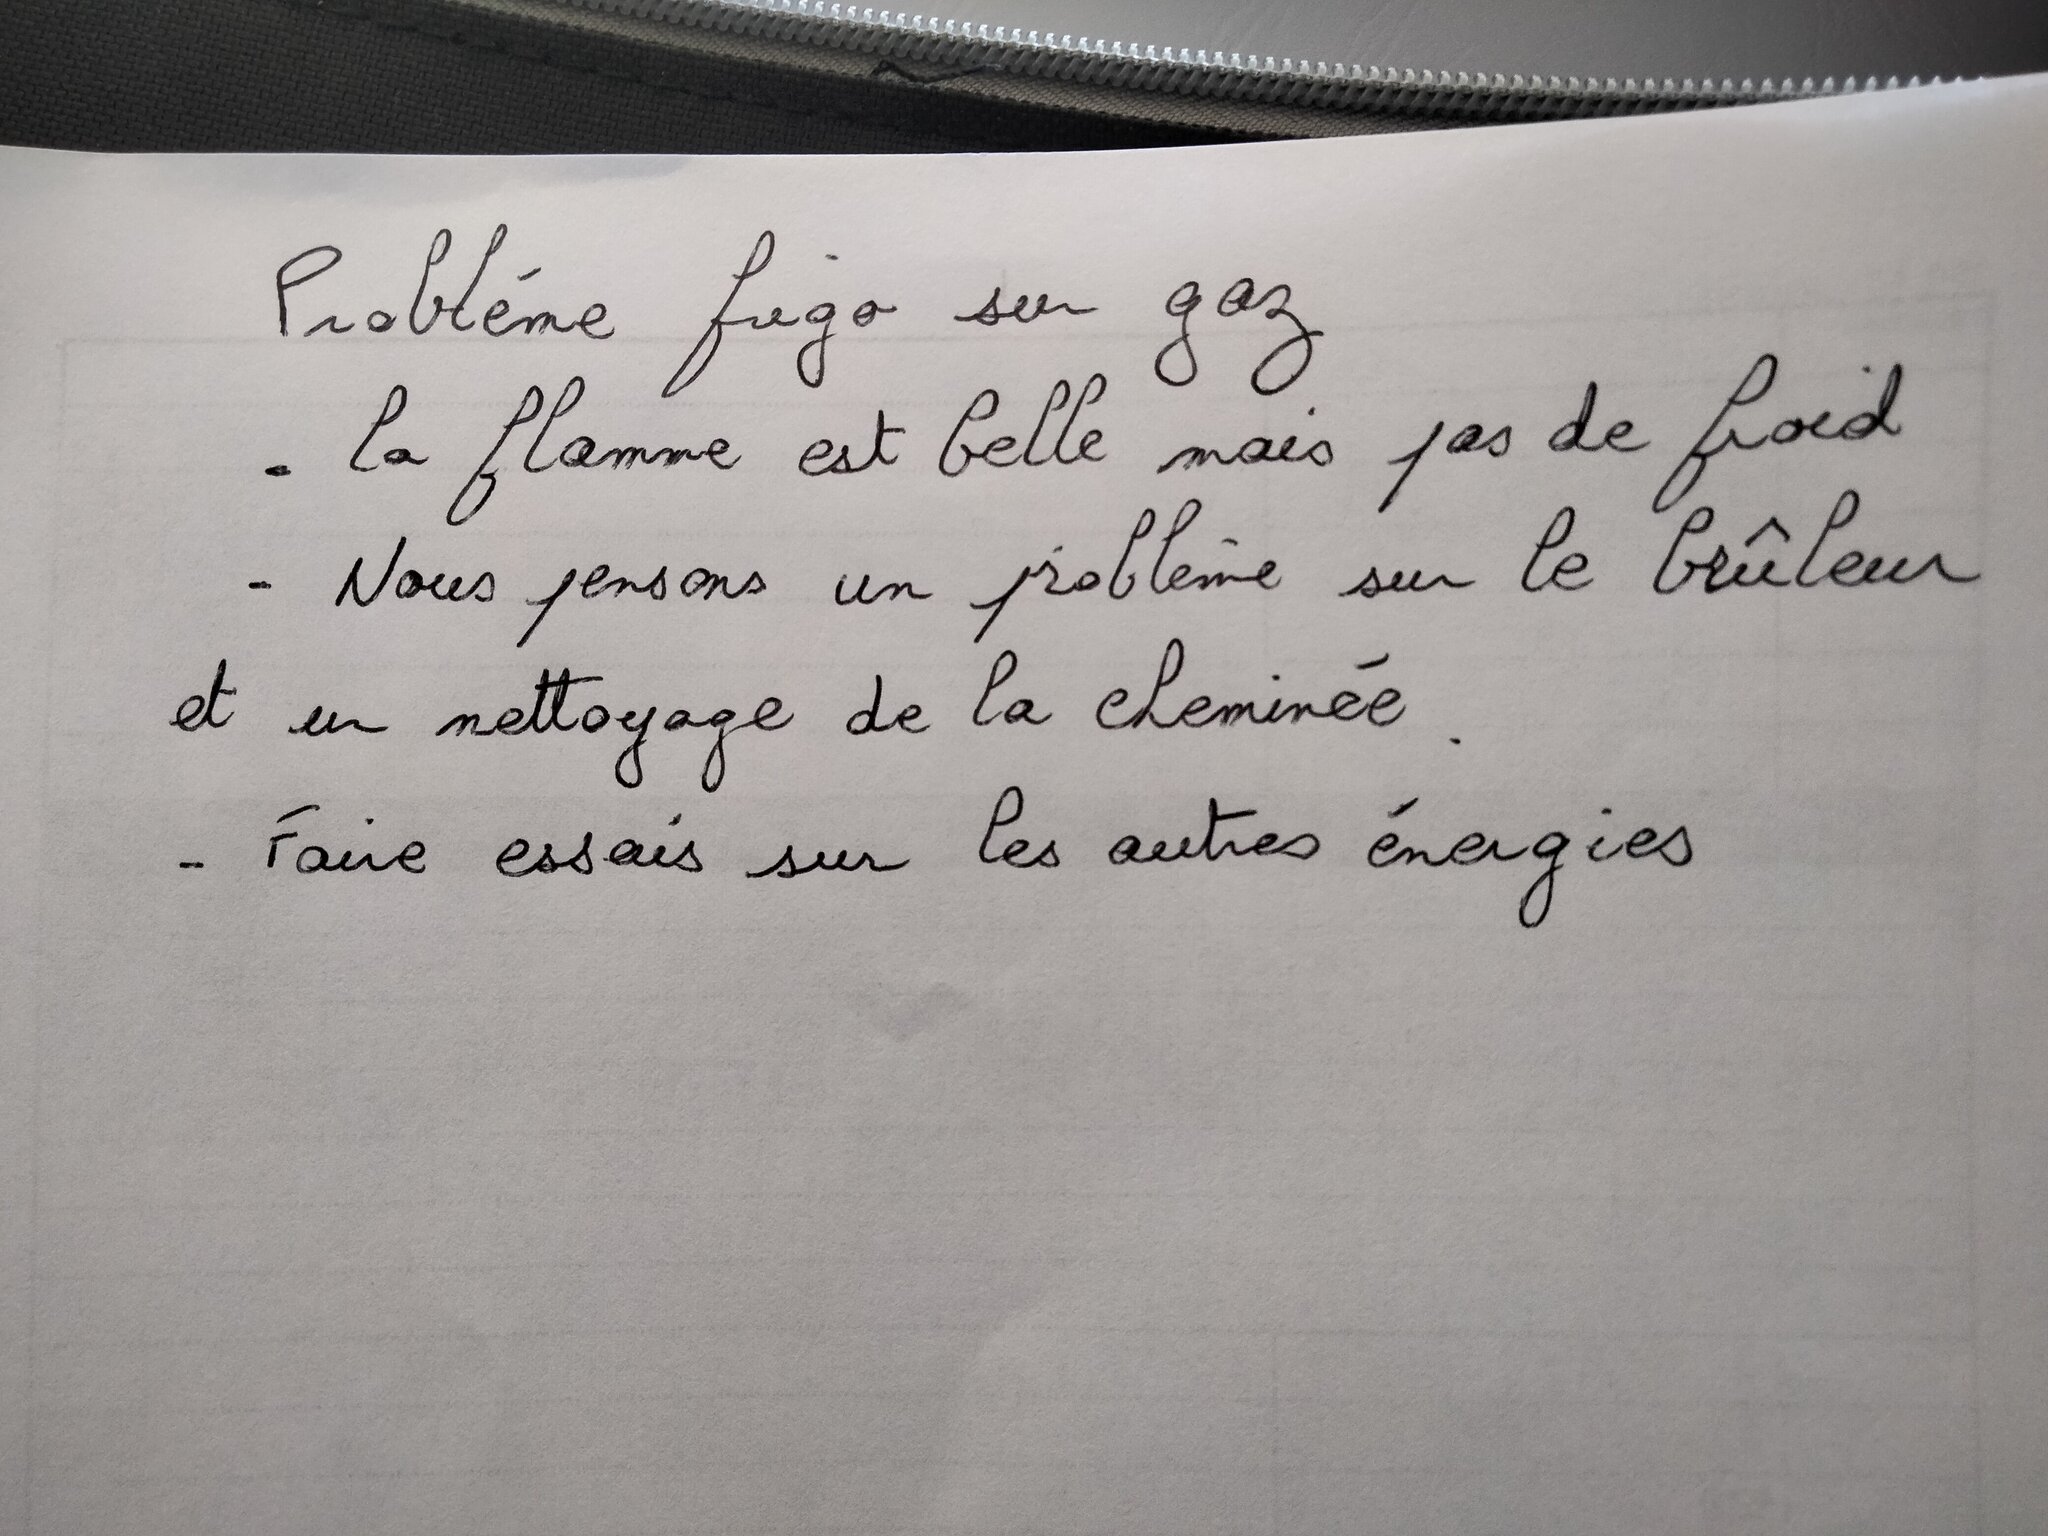 Probléme frigo sur gaz
- la flamme est belle mais pas de froid
- Nous pensons un problème sur le brûleur
et un nettoyage de la cheminée.
- Faire essais sur les autres énergies